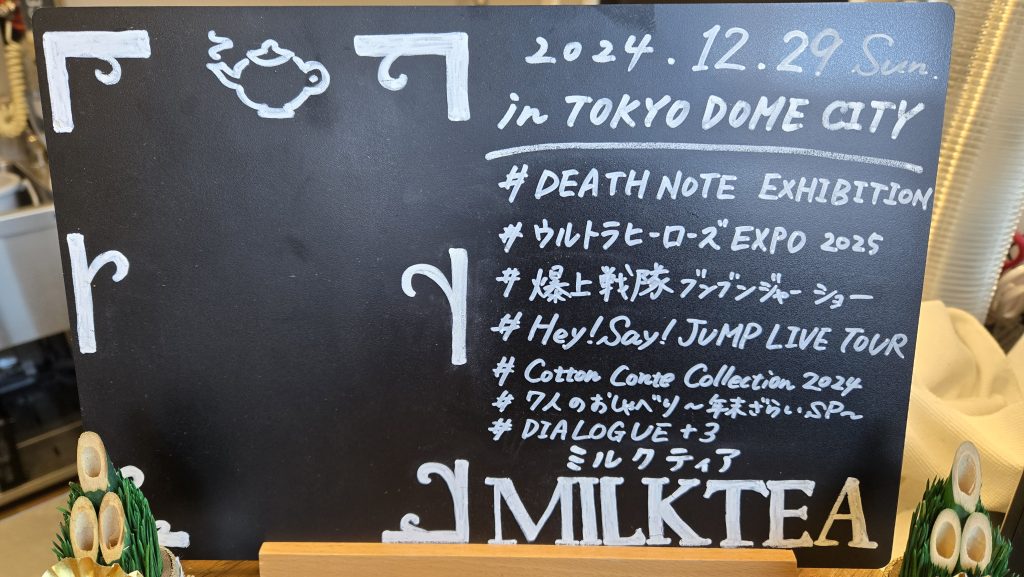 2024.12.29 Sun.
in TOKYO DOME CITY
# DEATH NOTE EXHIBITION
# ウルトラヒーローズEXPO 2025
# 爆上戦隊ブンブンジャー ショー
# Hey!Say!JUMP LIVE TOUR
# Cotton Conte Collection 2024
# 7人のおしゃべり〜年末ざらいSP〜
# DIALOGUE+3
ミルクティア
MILKTEA